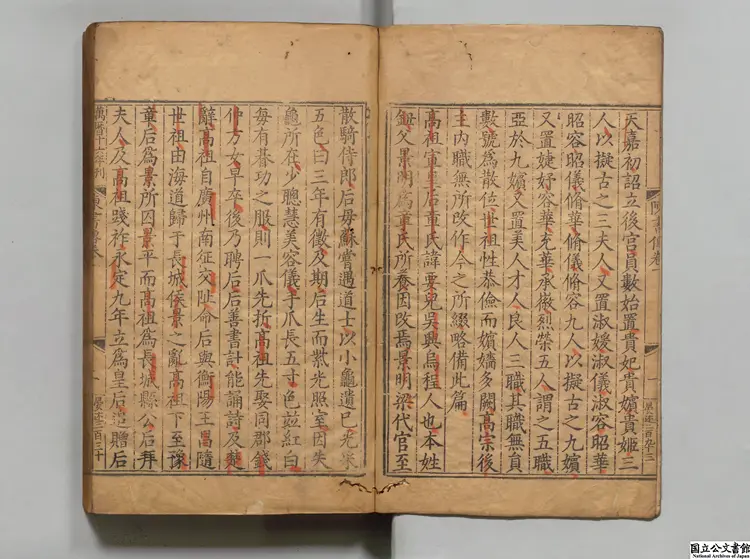 陳書傳卷一
一
天嘉初詔立後宮員數始置貴妃貴嬪貴姬三
人以擬古之三夫人又置淑媛淑儀淑容昭華
昭容昭儀脩華脩儀脩容九人以擬古之九嬪
又置婕妤容華充華承徽烈榮五人謂之五職
亞於九嬪又置美人才人良人三職其職無員
數號爲散位世祖性恭儉而嬪嬙多闕高宗後
主內職無所改作今之所綴略備此篇
高祖宣皇后章氏諱要兒吳興烏程人也本姓
鈕父景明爲章氏所養因改焉景明梁代官至
散騎侍郎后母蘇嘗遇道士以小龜遺巳光采
五色曰三年有徵及期后生而紫光照室因失
龜所在少聰慧美容儀手爪長五寸色並紅白
每有朞功之服則一爪先折高祖先娶同郡錢
仲方女早卒後乃聘后后善書計能誦詩及楚
辭高祖自廣州南征交阯命后與衡陽王昌隨
世祖由海道歸于長城侯景之亂高祖下至豫
章后爲景所囚景平而高祖爲長城縣公后拜
夫人及高祖踐祚永定九年立爲皇后追贈后
萬曆十六年刊
一
国立公文書館
National Archives of Japan